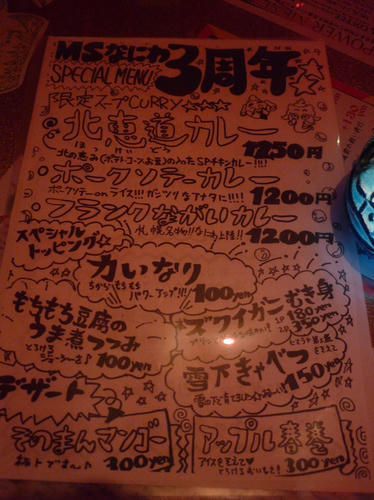 MSなにわ3周年
SPECIAL MENU
限定スープCURRY
北恵道カレー
ほっけいどう
北の恵み(ポテトコーンお豆)のったSPチキンカレー!!!
1250円
ポークソテーカレー
ポークソテーonライス!!!ガッツリなアナタに!!!!
1200円
フランクながいカレー
札幌名物!!なにわ上陸!!
1200円
スペシャルトッピング☆
力いなり
ちから もちもち
パワーアップ!!!
100yen
もちもち豆腐の
うま煮つつみ
100yen
ズワイガニむき身
1P 180yen
2P 350yen
雪下きゃべつ
150yen
デザート
そのまんマンゴー
300yen
アップル春巻
アイスをそえて♥
300yen